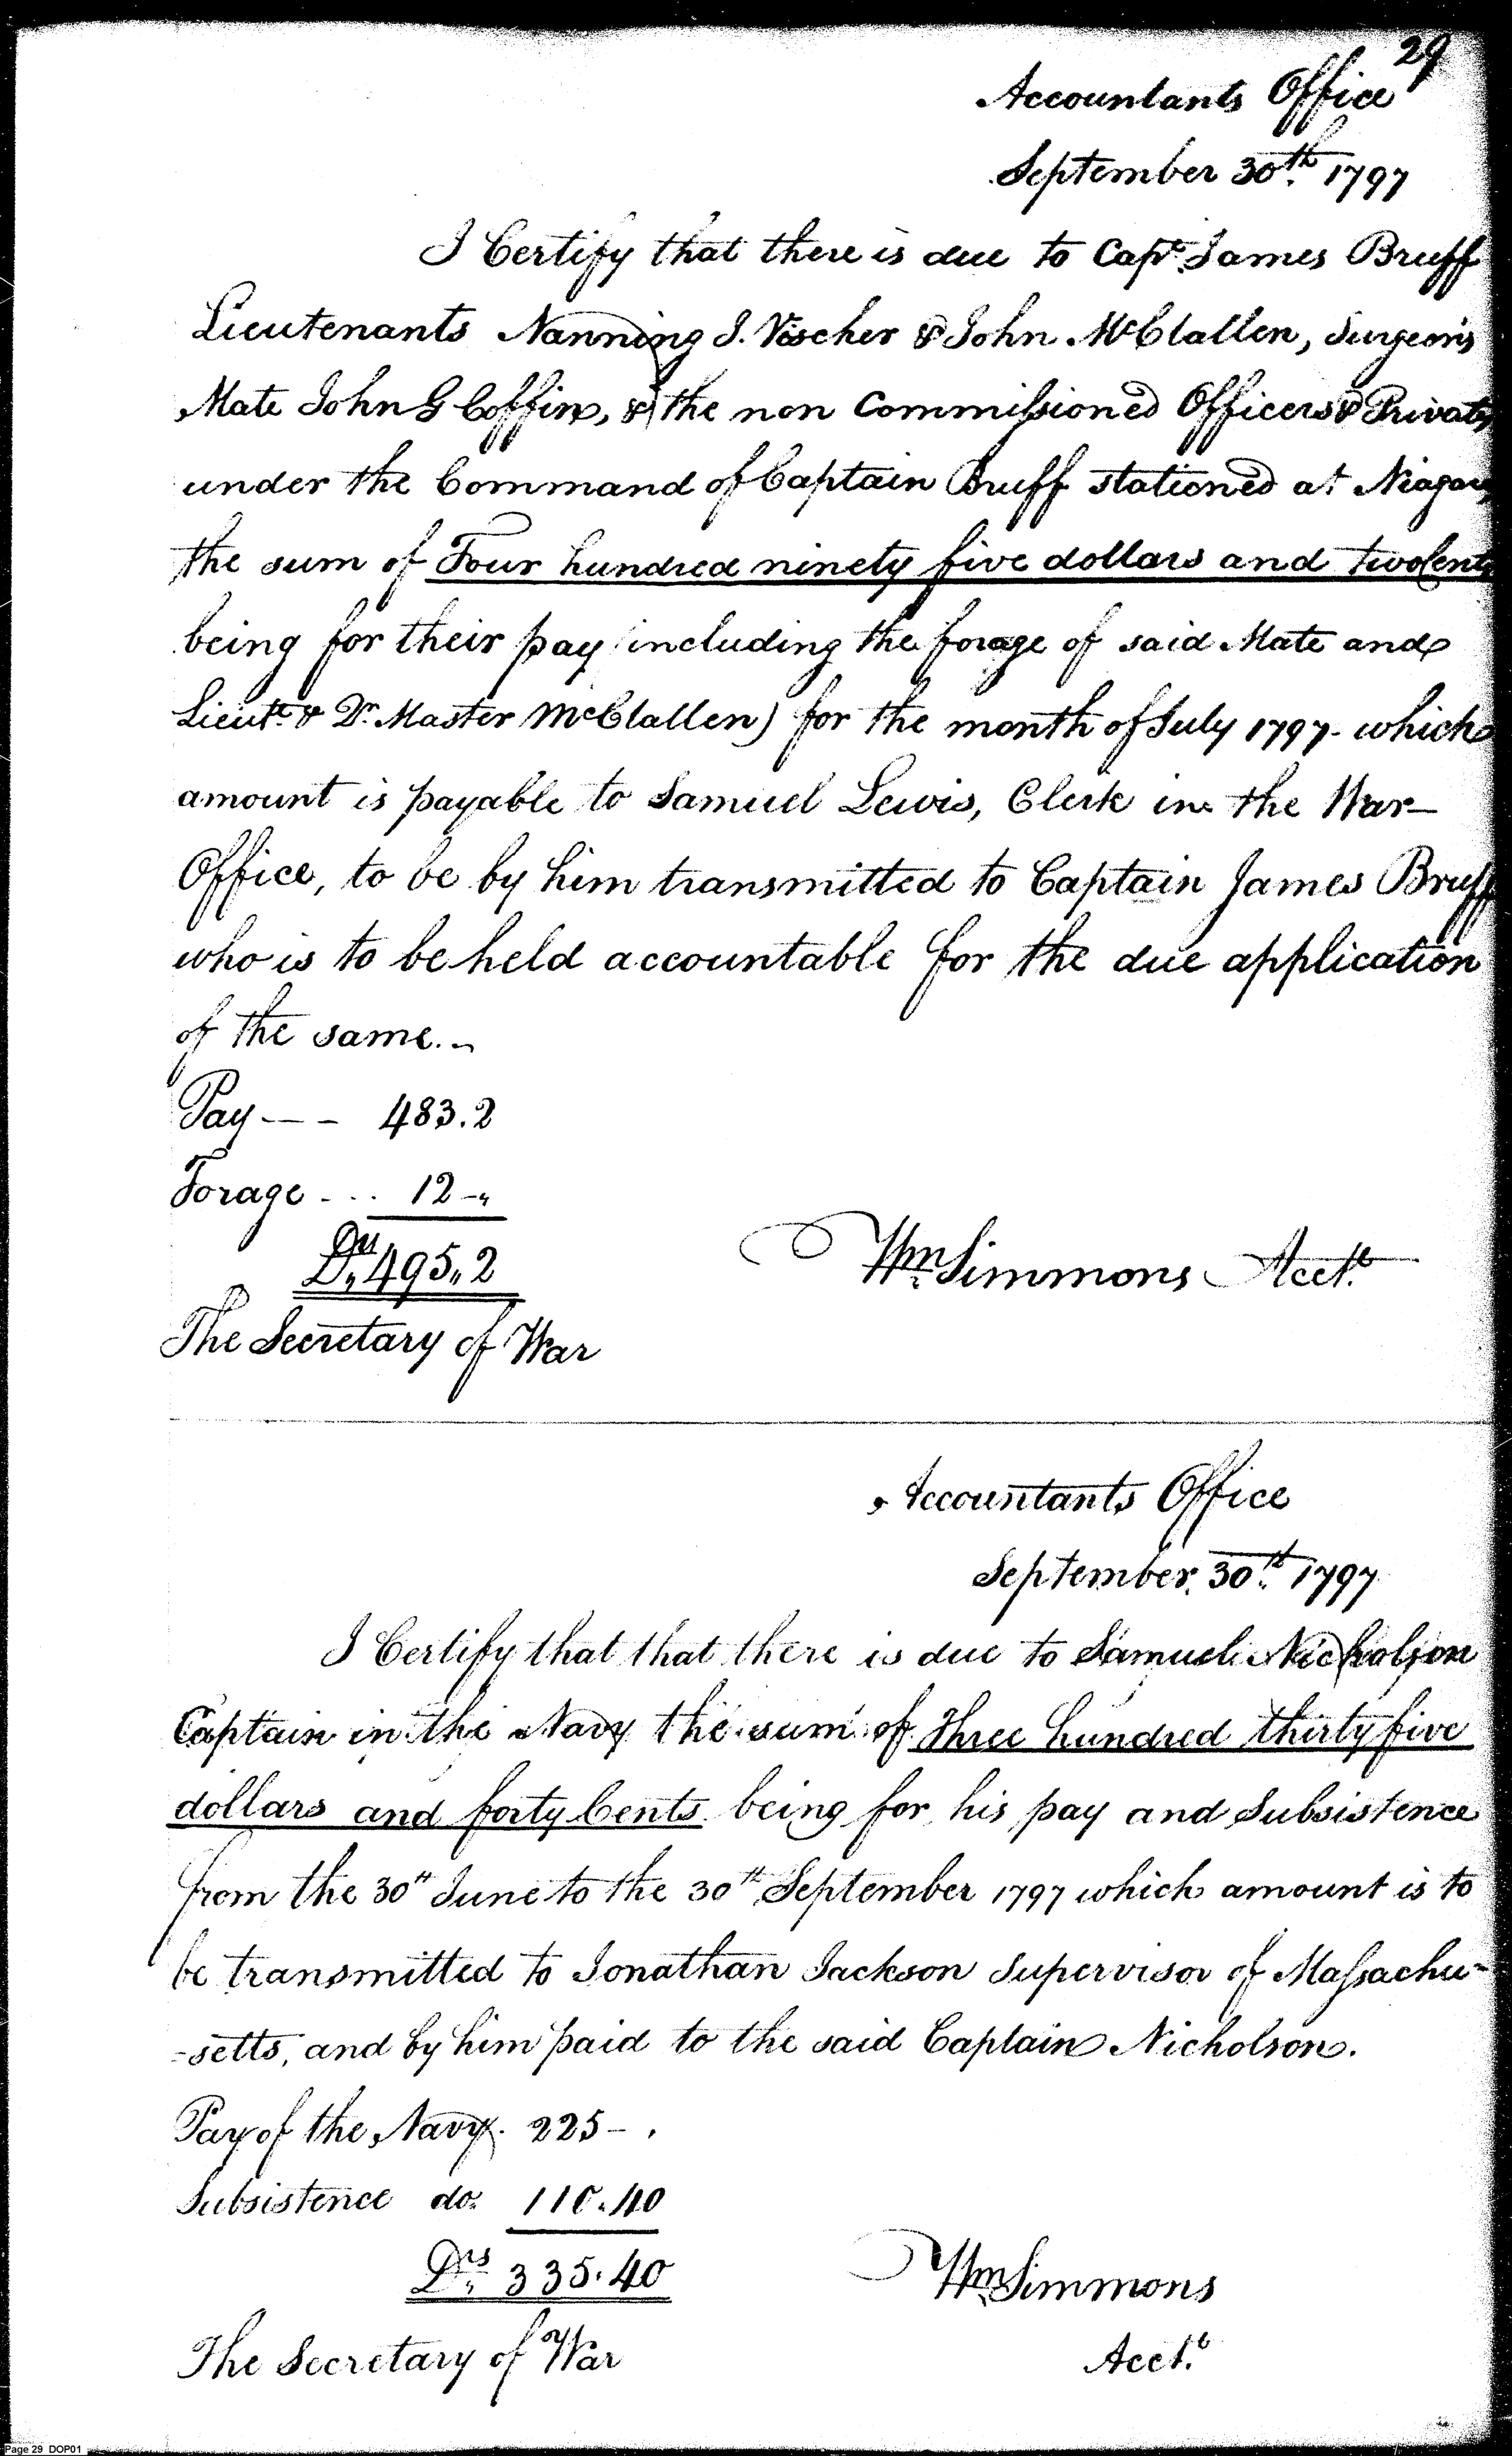 29
Accountants Office
September 30th. 1797
I Certify that there is due to Capt. James Bruff
Lieutenants Nanning J. Visscher & John McClallen, Surgeon's
Mate John G Coffin, & the non Commissioned Officers & Privates
under the Command of Captain Bruff stationed at Niagara
the sum of Four hundred ninety five dollars and two Cents
being for their pay (including the forage of said Mate and
Lieut. & Qr. Master McClallen) for the month of July 1797- which
amount is payable to Samuel Lewis, Clerk in the War-
Office, to be by him transmitted to Captain James Bruff
who is to be held accountable for the due application
of the same.-
Pay--- 483.2
Forage ... 12-"
Drs. 495,,2
Wm. Simmons Acct.
The Secretary of War
Accountants Office
September 30th. 1797
I Certify that that there is due to Samuel Nicholson
Captain in the Navy the sum of Three hundred thirty five
dollars and forty Cents being for his pay and Subsistence
from the 30th June to the 30th September 1797 which amount is to
be transmitted to Jonathan Jackson Supervisor of Massachu-
-setts, and by him paid to the said Captain Nicholson.
Pay of the Navy. 225-.
Subsistence do. 110.40
Drs. 335.40
Wm. Simmons
The Secretary of War
Acct.
Page 29 DOP01